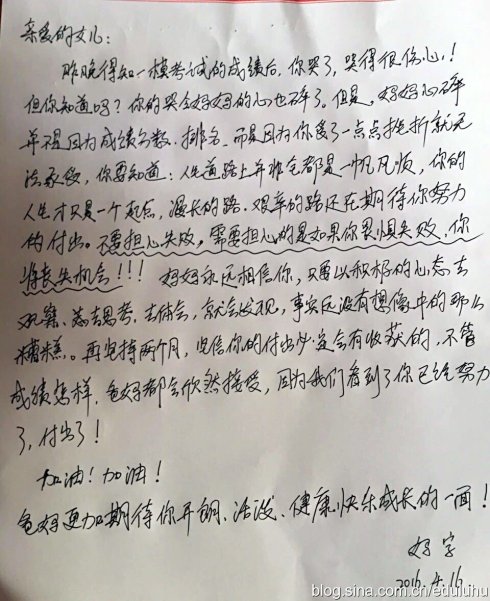 亲爱的女儿：
昨晚得知一模考试的成绩后，你哭了，哭得很伤心！
但你知道吗？你的哭会妈妈的心也碎了。但是，妈妈心碎
并不是因为成绩分数、排名，而是因为你受了一点点挫折就无
法承受，你要知道：人生道路上并非全都是一帆风顺，你的
人生才只是一个起点，漫长的路、艰辛的路还在期待你努力
的付出。不要担心失败，需要担心的是如果你畏惧失败，你
将丧失机会！！！妈妈永远相信你，只要以积极的心态去
观察、去思考、去体会，就会发现，事实远没有想像中的那么
糟糕。再坚持两个月，坚信你的付出必定会有收获的，不管
成绩怎样，爸妈都会欣然接受，因为我们看到了你已经努力
了，付出了！
加油！加油！
爸妈更加期待你开朗、活泼、健康快乐成长的一面！
妈字
2016.4.16
blog.sina.com.cn/eduluhu